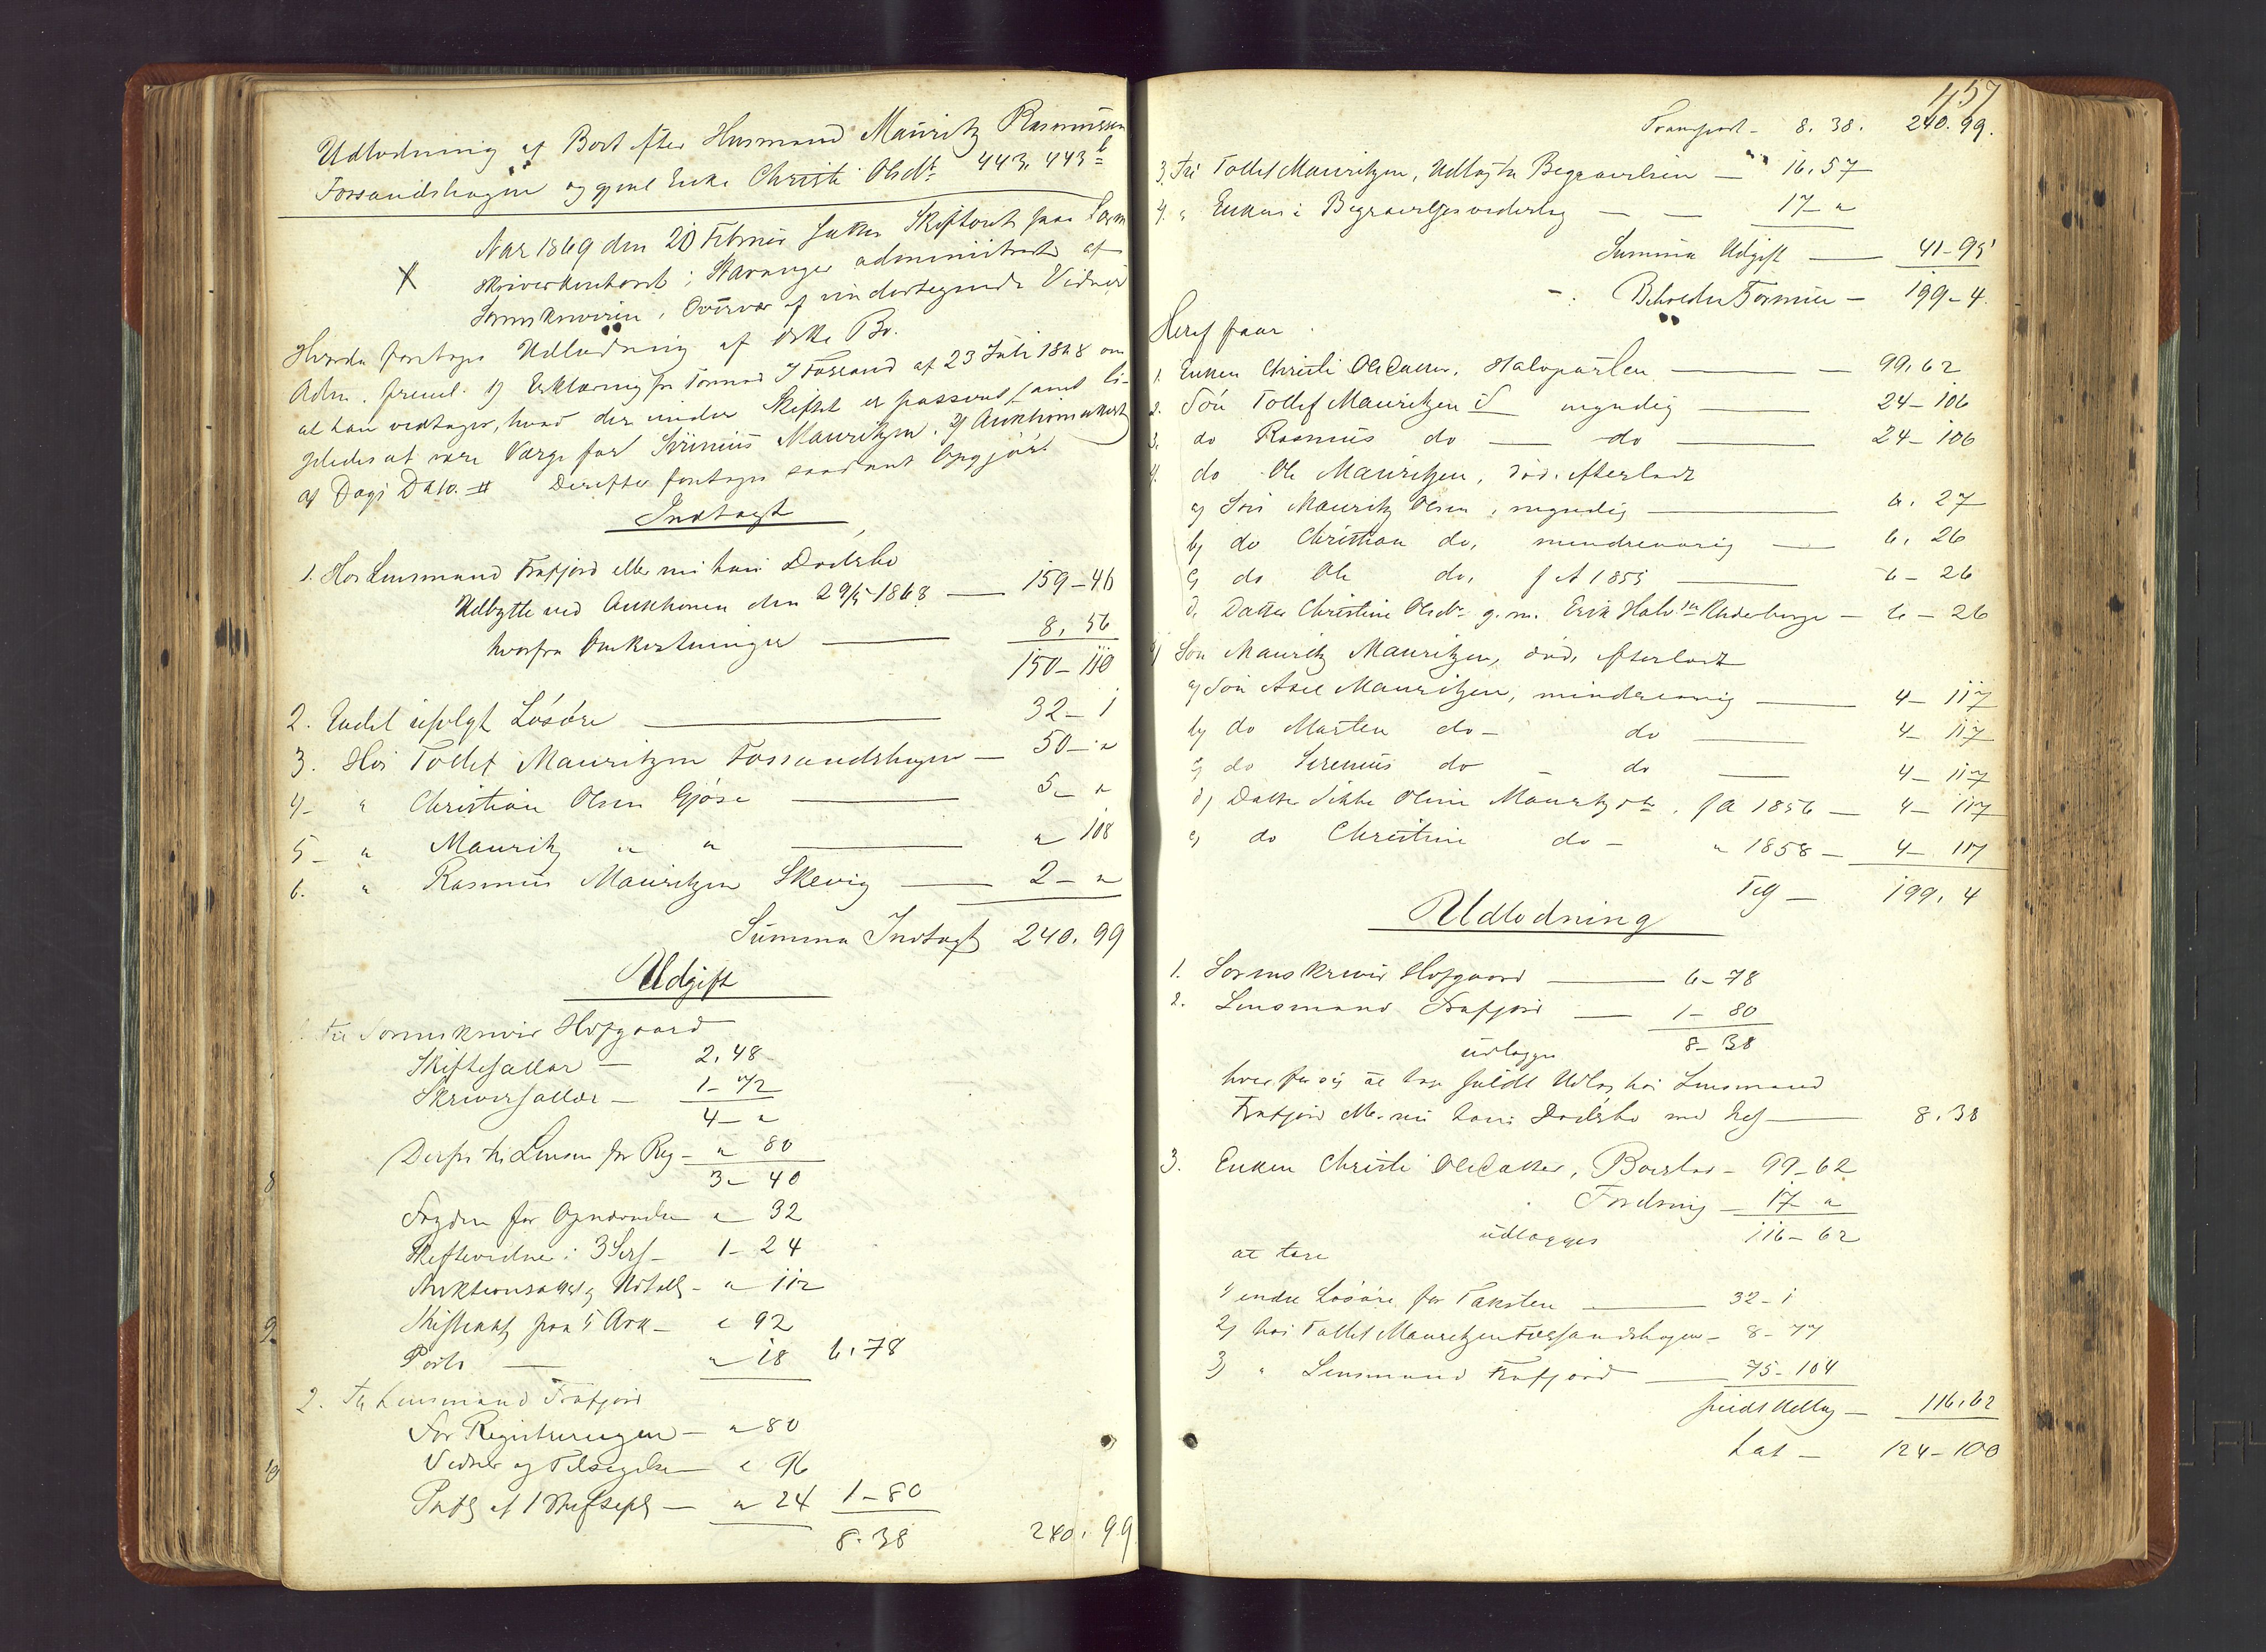 Udlodning af Boet efter Husmand Mauritz Rasmussen
Fossandshagen og gjenl Enke Christi Olsdtr 443, 443b
Aar 1869 den 20 Februar sattes Skifteret paa Soren
skriverkontoret i Stavanger administreret af
Sorenskriveren, Overvær af undertegnede Vidner
Hvorda foretoges Udlodning af dette Bo.
Adm. freml. 1) Erklæring fra Tormod J Fossand af 23 Juli 1868 om
at han vedtager, hvad der under Skiftet er passeret samt li-
geledes at være Værge for Sirenius Mauritzen. 2) Auktionsakt
af Dags Dato. Derefter foretoges saadant Opgjør:
Indtægt
1. Hos Lensmand Frafjord eller nu hans Dødsbo
Udbytte ved Auktionen den 29/5 1868 — 159–46
hvorfra Omkostninger — 8. 56
150–110
2. Endel usolgt Løsøre — 32–1
3. Hos Tollef Mauritzen Fossandshagen — 50–"
4– " Christian Olsen Gjøse — 5– "
5– " Mauritz " " — " 108
6. " Rasmus Mauritzen Skevig — 2– "
Summa Indtægt 240. 99
Udgift
1. Til Sorenskriver Hofgaard
Skiftesallær — 2. 48
Skriversallær — 1–72
4– "
Derfra til Lensm for Reg – " 80
3– 40
Fogden for " 32
Skiftevidner i 3 Sess – 1– 24
Auktionsakt " 112
Skifteakt paa 5 Ark – " 92
Porto — " 18 6. 78
2. Til Lensmand Frafjord
For Registreringen – " 80
Vidner og Tilsigelse " 96
af 1 — " 24 1–80
8. 38 240. 99
457
Transport – 8. 38. 240. 99.
3. Til Tollef Mauritzen, Udlagte Begravelsen — 16. 57
4. " Enken i Begravelsesvederlag — — 17– "
Summa Udgift — 41–95
Beholden Formue – 199–4.
Heraf faar
1. Enken Christi Olsdatter, Halvparten — 99. 62
2. Søn Tollef Mauritzen myndig — 24–106
3. do Rasmus do — do — 24–106
4. do Ole Mauritzen, død, efterladt
a) Søn Mauritz Olsen, myndig — 6. 27
b) do Christian do, mindreaarig — 6. 26
c) do Ole do, f A 1855 — 6– 26
d) Datter Christine Olsdtr g. m. Erik Halvsen Raderberge – 6– 26
5) Søn Mauritz Mauritzen, død, efterladt
a) Søn Axel Mauritzen, mindreaarig — 4– 117
b) do Morten do – do — 4– 117
c) do Sirenius do – do — 4– 117
d) Datter Sikke Oline Mauritzdtr, f A 1856 — 4– 117
e) do Christine do – " 1858 – 4– 117
Tilg – 199. 4
Udlodning
1. Sorenskriver Hofgaard — 6–78
2. Lensmand Frafjord — 1– 80
udlægges 8–38
hver for sig at tage fuldt Udlæg hos Lensmand
Frafjord ell. nu hans Dødsbo med — 8. 38
3. Enken Christi Olsdatter, Boeslod – 99–62
Fordring – 17– "
udlægges 116– 62
at tage
1) endel Løsøre for Taksten — 32–1
2) hos Tollef Mauritzen Fossandshagen – 8– 77
3) " Lensmand Frafjord — 75– 104
fuldt Udlæg – 116. 62
Lat – 124–100